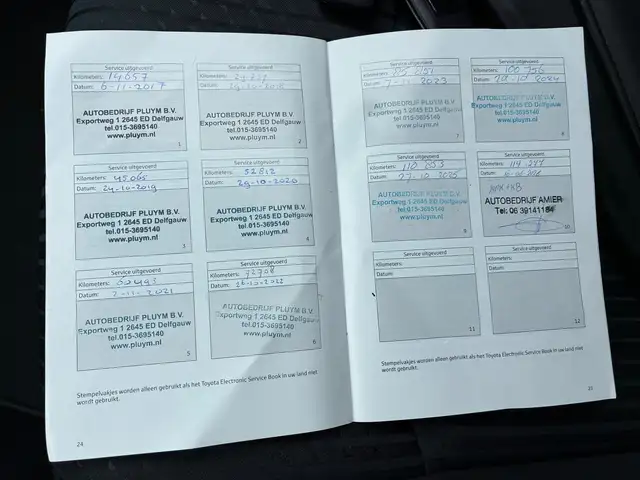 Service uitgevoerd
Kilometers: 14657
Datum: 6-11-2017
AUTOBEDRIJF PLUYM B.V.
Exportweg 1 2645 ED Delfgauw
tel.015-3695140
www.pluym.nl
1
Service uitgevoerd
Kilometers:
Datum:
AUTOBEDRIJF PLUYM B.V.
Exportweg 1 2645 ED Delfgauw
tel.015-3695140
www.pluym.nl
2
Service uitgevoerd
Kilometers: 45065
Datum: 24-10-2019
AUTOBEDRIJF PLUYM B.V.
Exportweg 1 2645 ED Delfgauw
tel.015-3695140
www.pluym.nl
3
Service uitgevoerd
Kilometers: 52812
Datum: 29-10-2020
AUTOBEDRIJF PLUYM B.V.
Exportweg 1 2645 ED Delfgauw
tel.015-3695140
www.pluym.nl
4
Service uitgevoerd
Kilometers: 60493
Datum: 2-11-2021
AUTOBEDRIJF PLUYM B.V.
Exportweg 1 2645 ED Delfgauw
tel.015-3695140
www.pluym.nl
5
Service uitgevoerd
Kilometers: 72708
Datum: 26-10-2022
AUTOBEDRIJF PLUYM B.V.
Exportweg 1 2645 ED Delfgauw
tel.015-3695140
www.pluym.nl
6
Stempelvakjes worden alleen gebruikt als het Toyota Electronic Service Book in uw land niet
wordt gebruikt.
24
Service uitgevoerd
Kilometers:
Datum: 7-11-2023
AUTOBEDRIJF PLUYM B.V.
Exportweg 1 2645 ED Delfgauw
tel.015-3695140
www.pluym.nl
7
Service uitgevoerd
Kilometers: 100 756
Datum: 28-10-2024
AUTOBEDRIJF PLUYM B.V.
Exportweg 1 2645 ED Delfgauw
tel.015-3695140
www.pluym.nl
8
Service uitgevoerd
Kilometers: 110
Datum: 27-10-2025
AUTOBEDRIJF PLUYM B.V.
Exportweg 1 2645 ED Delfgauw
tel.015-3695140
www.pluym.nl
9
Service uitgevoerd
Kilometers: 114.247
Datum:
AUTOBEDRIJF AMIER
Tel: 06 39141184
10
Service uitgevoerd
Kilometers:
Datum:
11
Service uitgevoerd
Kilometers:
Datum:
12
Stempelvakjes worden alleen gebruikt als het Toyota Electronic Service Book in uw land niet
wordt gebruikt.